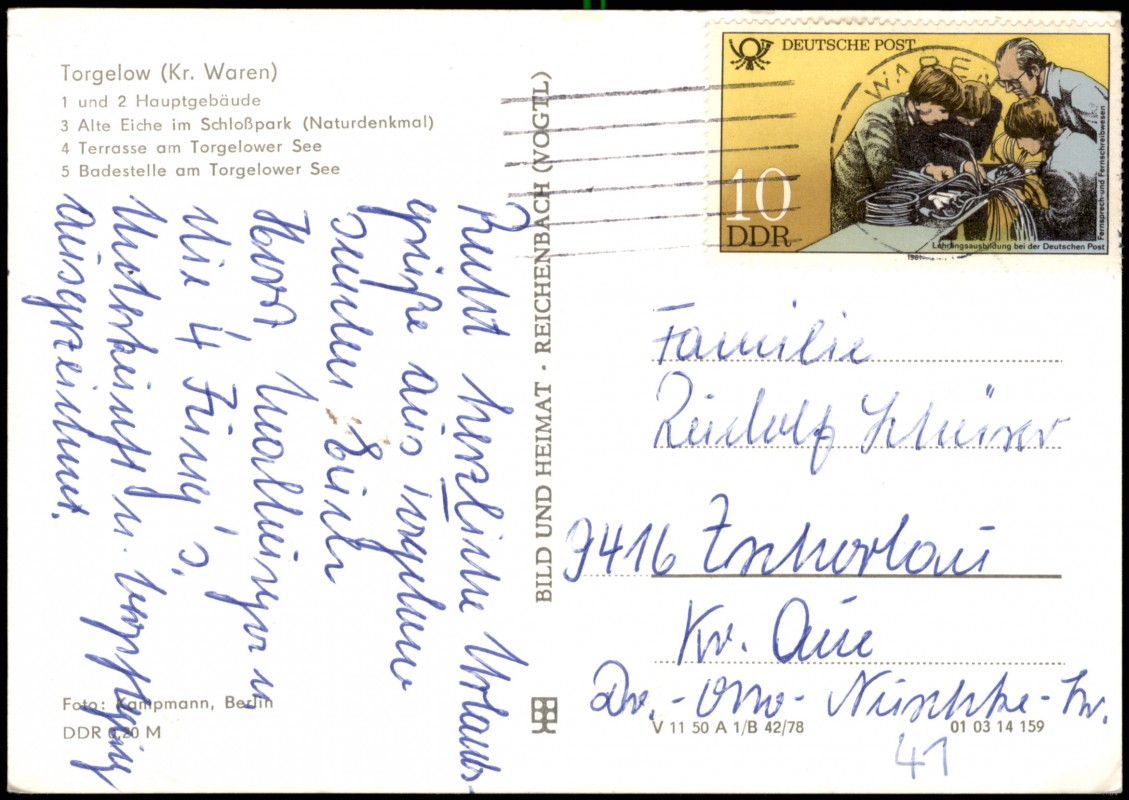 Torgelow (Kr. Waren)
1 und 2 Hauptgebäude
3 Alte Eiche im Schloßpark (Naturdenkmal)
4 Terrasse am Torgelower See
5 Badestelle am Torgelower See
Recht herzliche Urlaubs-
grüße aus Torgelow
senden Euch
Horst u.
die 4
Unterkunft u. Verpflegung
ausgezeichnet.
Foto: Kampmann, Berlin
DDR 0,20 M
BILD UND HEIMAT · REICHENBACH (VOGTL)
DEUTSCHE POST
WAREN
10
DDR
Lehrlingsausbildung bei der Deutschen Post
Fernsprech- und Fernschreibwesen
1981
Familie
Rudolf
9416 Zschorlau
Kr. Aue
Dr.-Otto-Nuschke-Str.
41
V 11 50 A 1/B 42/78
01 03 14 159